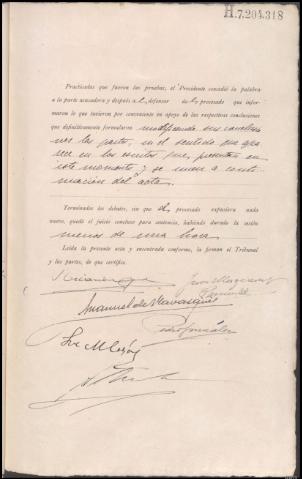 H.7.204.318
Practicadas que fueron las pruebas, el Presidente concedió la palabra
a la parte acusadora y después al defensor del procesado que infor-
maron lo que tuvieron por conveniente en apoyo de las respectivas conclusiones
que definitivamente formularon modificando sus conclusio
nes las partes, en el sentido que apa
rece en los escritos que presentan en
este momento y se unen a conti
nuación del acta.
Terminados los debates, sin que el procesado expusiera nada
nuevo, quedó el juicio concluso para sentencia, habiendo durado la sesión
menos de una hora
Leída la presente acta y encontrada conforme, la firman el Tribunal
y las partes, de que certifico.
Manuel de
Pedro González
José M